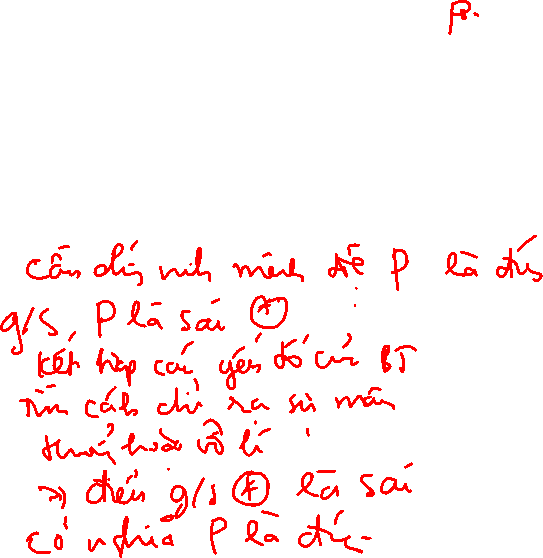 P.
Cần chứng minh mệnh đề P là đúng
g/s, P là sai (*)
Kết hợp các yếu tố của BT
Tìm cách chỉ ra sự mâu
thuẫn hoặc vô lí
=> điều g/s (*) là sai
có nghĩa P là đúng